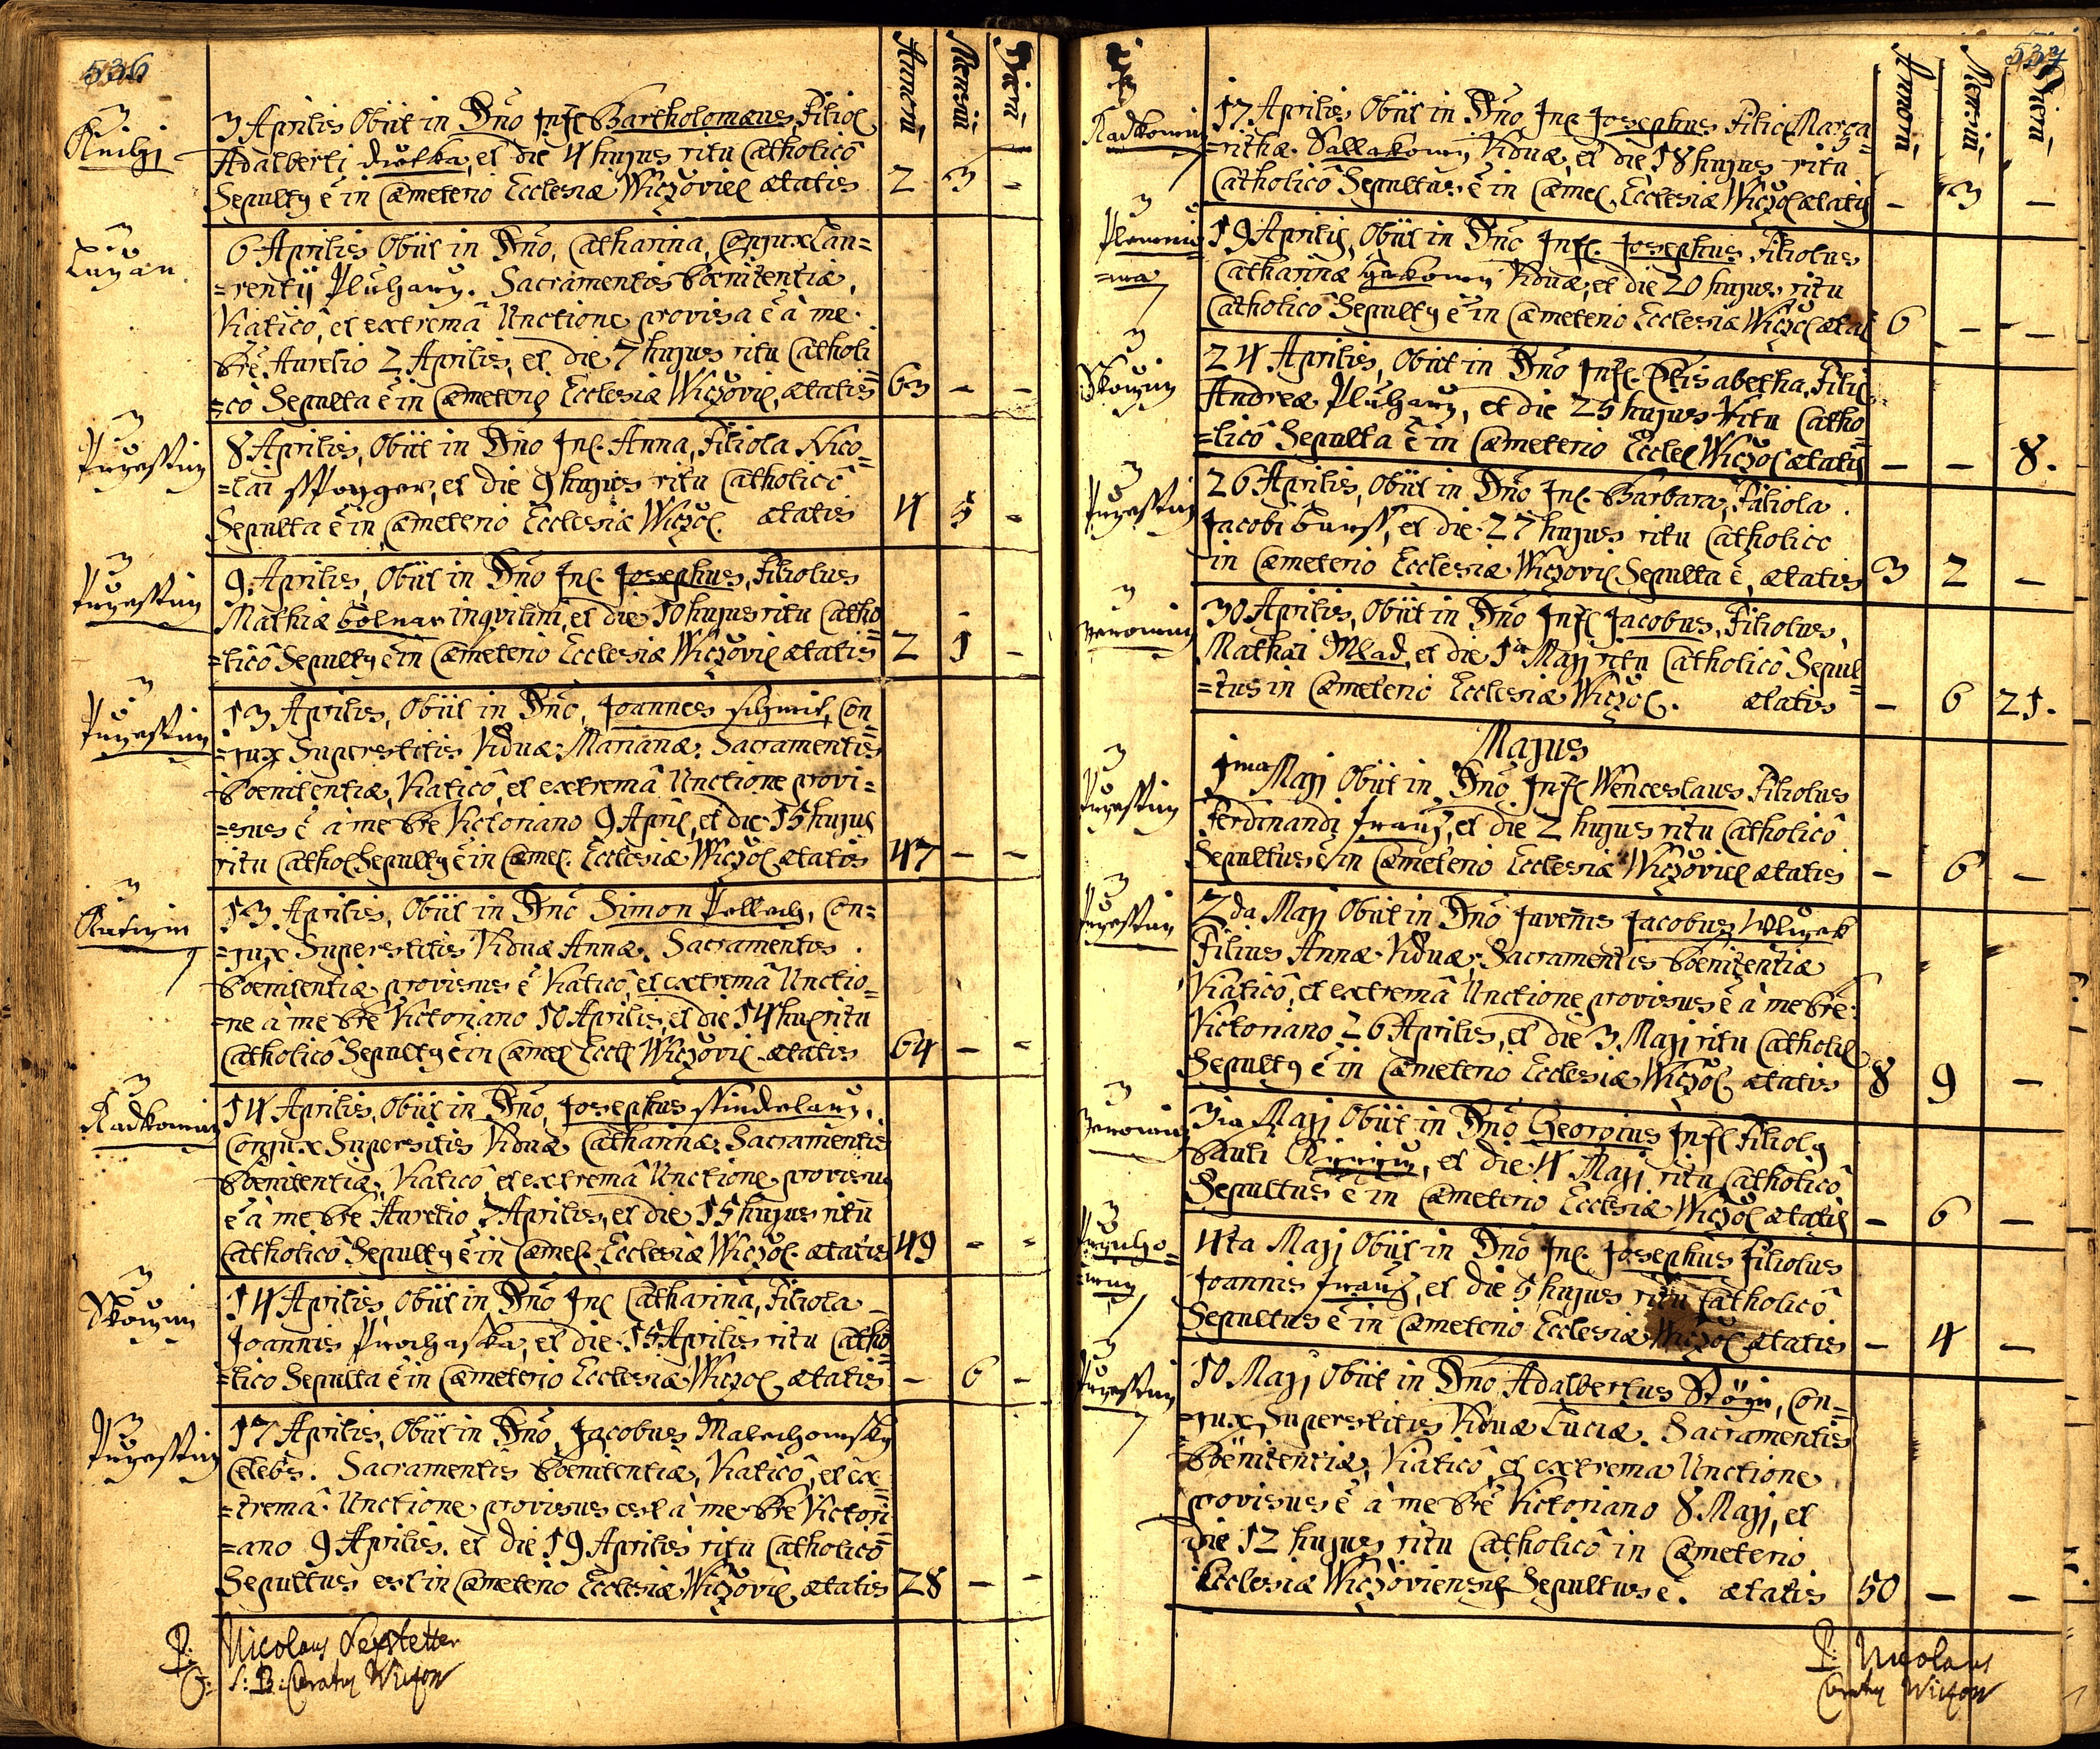 536
Annorū Mensiū Dierū
3 Aprilis Obiit in Dño Inf. Bartholomæus, Filiol
Adalberti diotka, et die 4 hujus ritu Catholicô
Sepultg ē in Cæmeterio Ecclesiæ Wiczoviel ætatis 2 3 -
Luzan
6 Aprilis Obiit in Dño, Catharina, Conjux Lau=
=rentij Pluharu. Sacramentis Pœnitentiæ,
Viaticô, et extremâ Unctione provisa ē à me
Pre Aurelio 2 Aprilis, et die 7 hujus ritu Catholi
=cô Sepulta ē in Cæmeterio Ecclesiæ Wiczoviel, ætatis 63 - -
8 Aprilis, Obiit in Dño Inf. Anna, Filiola Nico=
=lai, et die 9 hujus ritu Catholicô
Sepulta ē in Cæmeterio Ecclesiæ Wiczol. ætatis 4 5 -
9 Aprilis, Obiit in Dño Inf. Josephus, Filiolus
Mathiæ bolnar inqvilini, et die 10 hujus ritu Catho
=licô Sepultg ē in Cæmeterio Ecclesiæ Wiczoviel ætatis 2 1 -
13 Aprilis, Obiit in Dño, Joannes schmit, Con
=jux Superstitis Viduæ Marianæ. Sacramentis
Pœnitentiæ, Viaticô, et extremâ Unctione provi=
=sus ē à me Pre Victoriano 9 April, et die 15 hujus
ritu Cathol Sepultg ē in Cæmel. Ecclesiæ Wiczol ætatis 47 - -
13 Aprilis, Obiit in Dño Simon Pollach, Con=
=jux Superstitis Viduæ Annæ. Sacramentis
Pœnitentiæ provisus ē Viaticô, et extremâ Unctio=
=ne à me Pre Victoriano 10 Aprilis, et die 14 huj ritu
Catholicô Sepultg ē in Cæmel Eccl Wiczoviel ætatis 64 - -
Radkowiu
14 Aprilis, Obiit in Dño, Josephus stindelarz,
Conjux Supersitis Viduæ Catharinæ. Sacramentis
Pœnitentiæ, Viaticô et extremâ Unctione provisus
ē à me Pre Aurelio 7 Aprilis, et die 15 hujus ritu
Catholicô Sepultg ē in Cæmel. Ecclesiæ Wiczol. ætatis 49 - -
14 Aprilis Obiit in Dño Inf Catharina, Filiola
Joannis Prochaska, et die 15 Aprilis ritu Catho
=lico Sepulta ē in Cæmeterio Ecclesiæ Wiczol ætatis - 6 -
17 Aprilis, Obiit in Dño, Jacobus Malechowsky
Celebs. Sacramentis Pœnitentiæ, Viaticô, et ex
=tremâ Unctione provisus est à me Pre Victori
=ano 9 Aprilis. et die 19 Aprilis ritu Catholicô
Sepultus est in Cæmeterio Ecclesiæ Wiczoviel ætatis 28 - -
P: Nicolaus
S: B: Curatg Wiczow
537
Annorū Mensiū Dierū
Radkowiu
17 Aprilis Obiit in Dño Inf. Josephus Filiol Marga=
=rithæ Viduæ, et die 18 hujus ritu
Catholicô Sepultus ē in Cæmel. Ecclesiæ Wiczol ætatis - 3 -
19 Aprilis, Obiit in Dño Inf. Josephus Filiolus
Catharinæ Viduæ, et die 20 hujus ritu
Catholico Sepultg ē in Cæmeterio Ecclesiæ Wiczol ætat 6 - -
24 Aprilis, Obiit in Dño Inf. Elisabetha, Filiol
Andreæ Pluharz, et die 25 hujus ritu Catho=
=licô Sepulta ē in Cæmeterio Eccles Wiczol ætatis - - 8.
26 Aprilis, Obiit in Dño Inf. Barbara, Filiola
Jacobi, et die 27 hujus ritu Catholico
in Cæmeterio Ecclesiæ Wiczoviel Sepulta ē, ætatis 3 2 -
30 Aprilis, Obiit in Dño Inf Jacobus, Filiolus,
Mathæi Mlad, et die 1a Maji ritu Catholicô Sepul=
=tus in Cæmeterio Ecclesiæ Wiczol. ætatis - 6 21.
Majus
1ma Maji Obiit in Dño Inf Wenceslaus Filiolus
Ferdinandi Franz, et die 2 hujus ritu Catholicô
Sepultus ē in Cæmeterio Ecclesiæ Wiczoviel ætatis - 6 -
2da Maji Obiit in Dño Juvenis Jacobus Wlczek
Filius Annæ Viduæ; Sacramentis Pœnitentiæ
Viaticô, et extremâ Unctione provisus ē à me Pre
Victoriano 26 Aprilis, et die 3 Maji ritu Catholil
Sepultg ē in Cæmeterio Ecclesiæ Wiczol ætatis 8 9 -
3ia Maji Obiit in Dño Georgius Inf Filiolg
Pauli, et die 4 Maji ritu Catholicô
Sepultus ē in Cæmeterio Ecclesiæ Wiczol ætatis - 6 -
4ta Maji Obiit in Dño Inf. Josephus Filiolus
Joannis Franz, et die 5 hujus ritu Catholicô
Sepultus ē in Cæmeterio Ecclesiæ Wiczol ætatis - 4 -
10 Maji Obiit in Dño Adalbertus, Con=
=jux Superstitis Viduæ Luciæ. Sacramentis
Pœnitentiæ, Viaticô, et extrema Unctione
provisus ē à me Pre Victoriano 8 Maji, et
die 12 hujus ritu Catholicô in Cæmeterio
Ecclesiæ Wiczoviensis Sepultus ē. ætatis 50 - -
P: Nicolaus
Curatg Wiczow